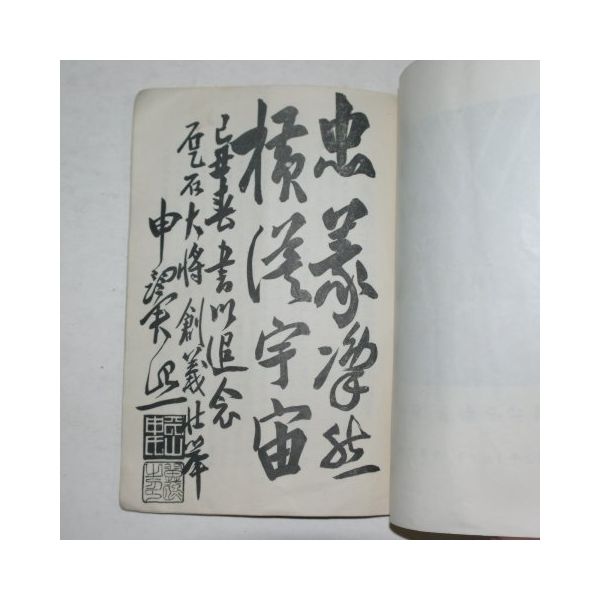 忠義凜然
橫溢宇宙
己丑春書以追念
乭石大將創義壯擧
申翼熙